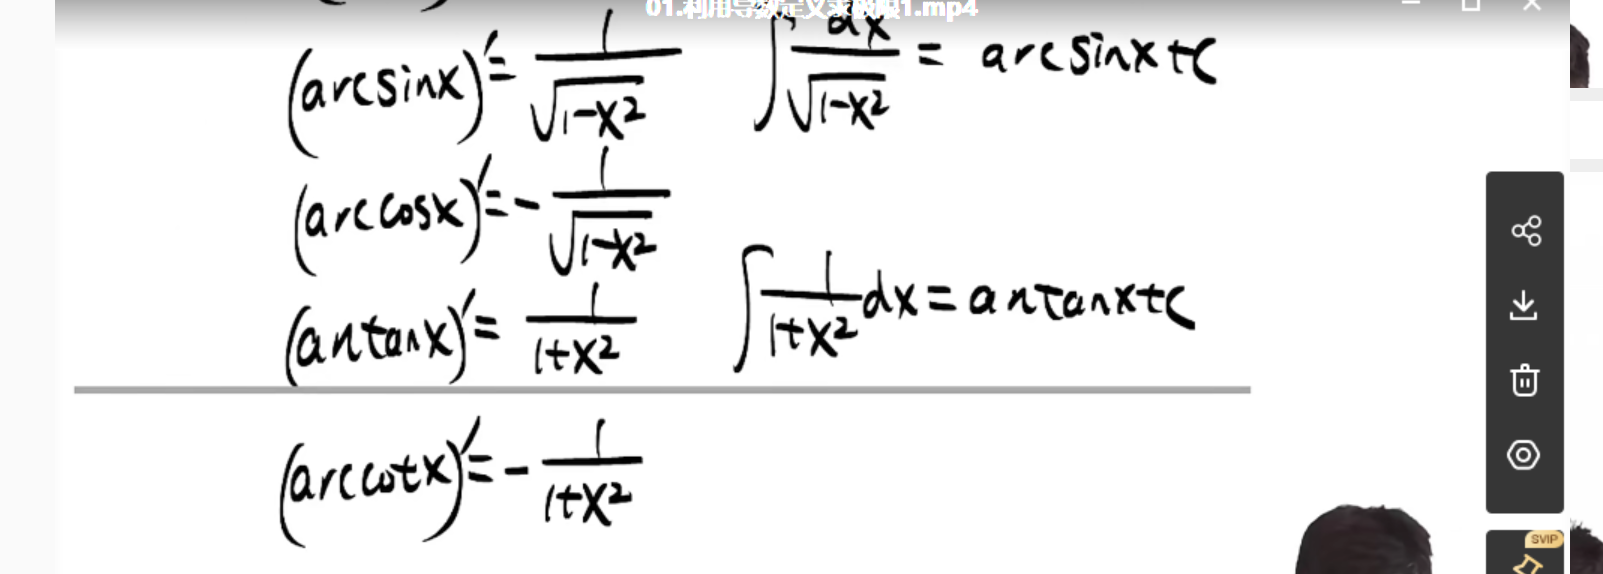 01.利用导数定义求极限1.mp4
(arcsinx)′=1/√(1-x²) ∫dx/√(1-x²) = arcsinx+c
(arccosx)′=-1/√(1-x²)
(antanx)′=1/(1+x²) ∫1/(1+x²)dx=antanx+c
(arccotx)′=-1/(1+x²)
SVIP